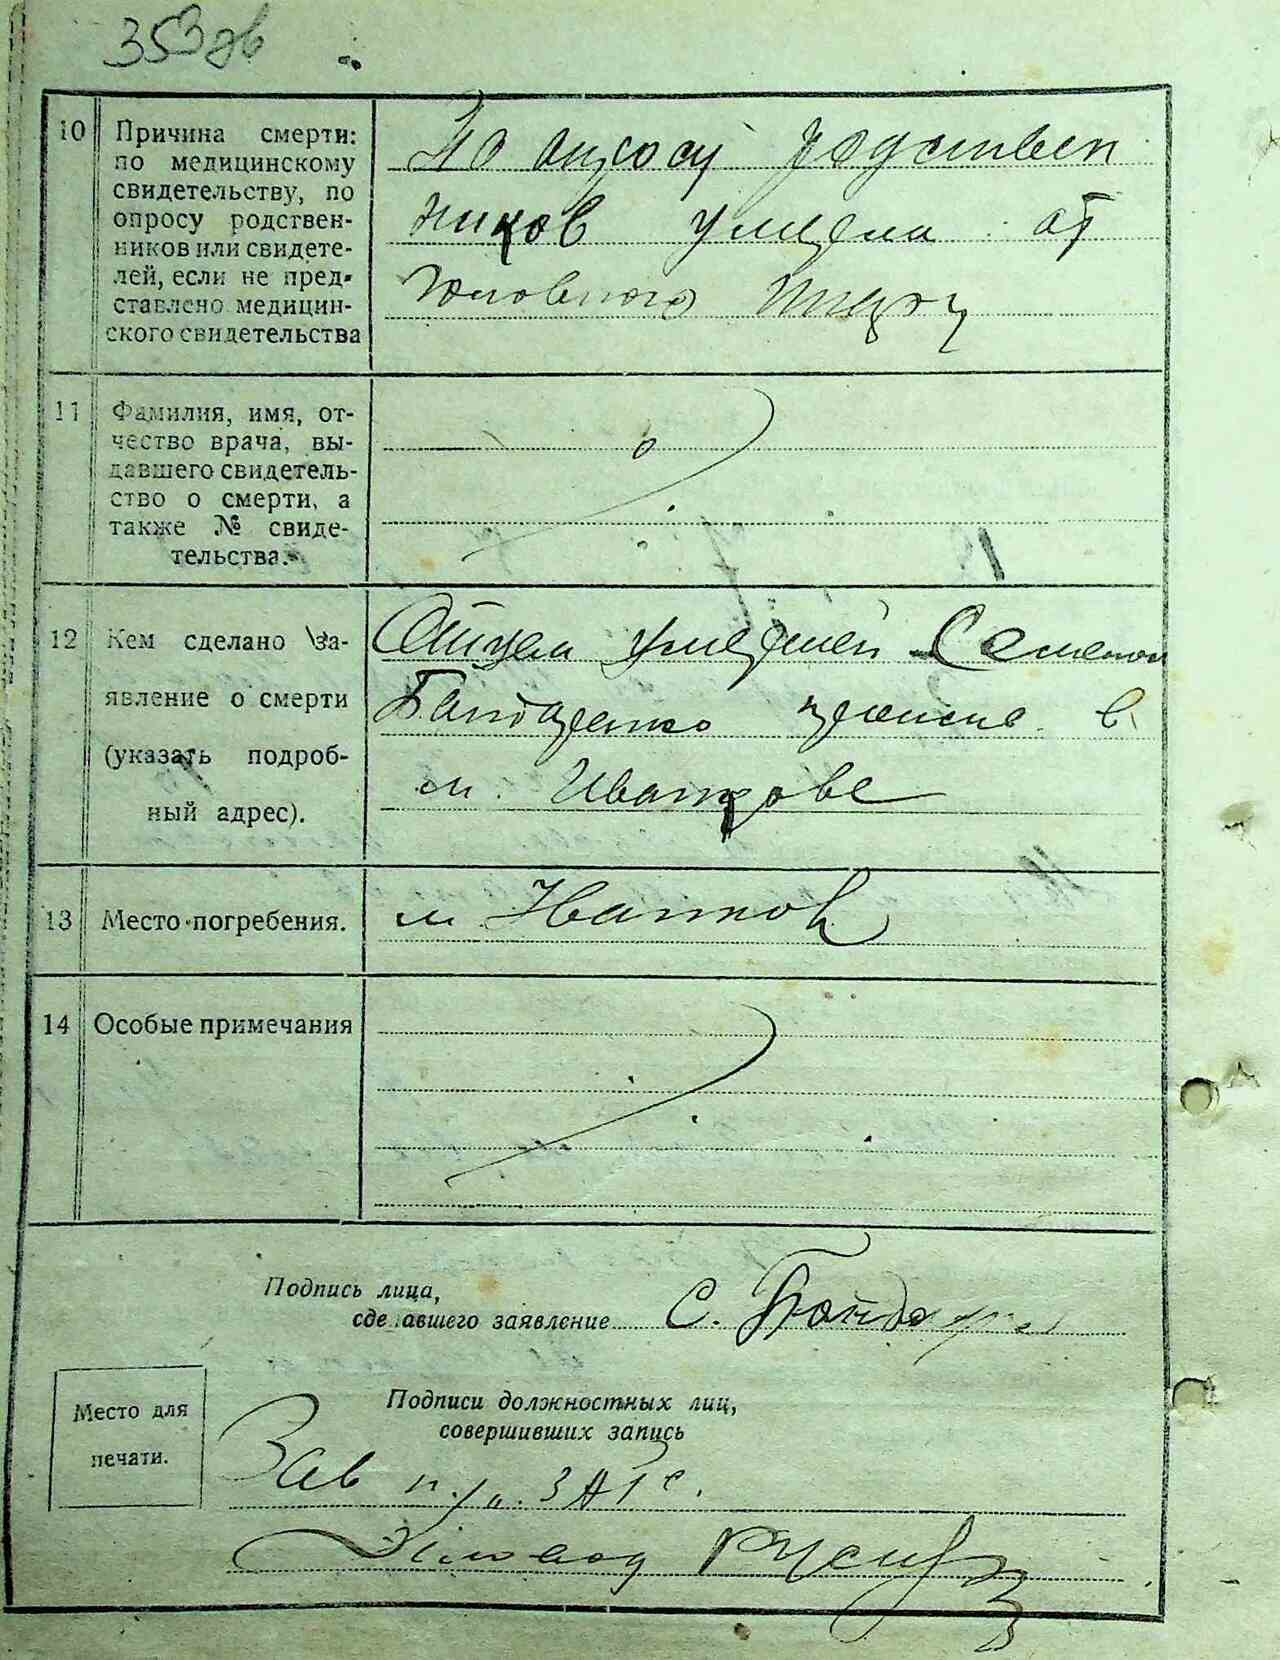 353 об
10 Причина смерти:
по медицинскому
свидетельству, по
опросу родствен-
ников или свидете-
лей, если не пред-
ставлено медицин-
ского свидетельства
По опросу родствен
ников умерла от
11 Фамилия, имя, от-
чество врача, вы-
давшего свидетель-
ство о смерти, а
также № свиде-
тельства.
12 Кем сделано за-
явление о смерти
(указать подроб-
ный адрес).
Отцем умершей Семеном
Бандаренко в
м.
13 Место погребения.
м
14 Особые примечания
Подпись лица,
сделавшего заявление
С.
Место для
печати.
Подписи должностных лиц,
совершивших запись
Зав ЗАГС.